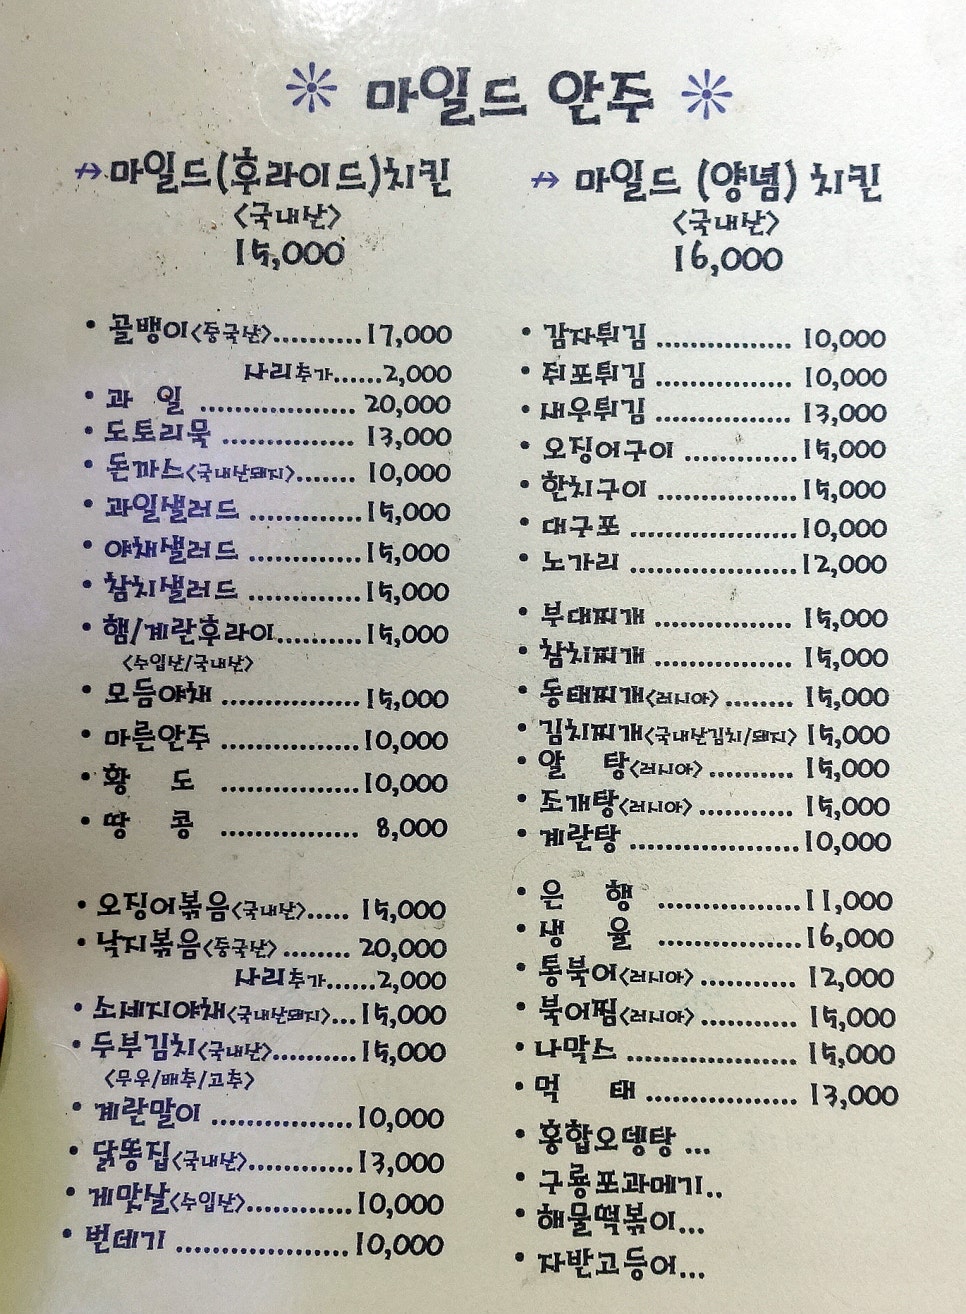 마일드 안주
마일드(후라이드)치킨
<국내산>
15,000
마일드 (양념) 치킨
<국내산>
16,000
• 골뱅이<중국산>..........17,000
사리추가......2,000
• 과 일 .................. 20,000
• 도토리묵 ............... 13,000
• 돈까스<국내산돼지>....... 10,000
• 과일샐러드 .............15,000
• 야채샐러드 .............15,000
• 참치샐러드 .............15,000
• 햄/계란후라이..........15,000
<수입산/국내산>
• 모듬야채 ................15,000
• 마른안주 ................10,000
• 황 도 ................10,000
• 땅 콩 ................ 8,000
• 오징어볶음<국내산>..... 15,000
• 낙지볶음<중국산> ........ 20,000
사리추가......2,000
• 소세지야채<국내산돼지>...15,000
• 두부김치<국내산>..........15,000
<무우/배추/고추>
• 계란말이 ................10,000
• 닭똥집<국내산>............13,000
• 게맛살<수입산>............10,000
• 번데기 ....................10,000
• 감자튀김 ................ 10,000
• 쥐포튀김 ................ 10,000
• 새우튀김 ................ 13,000
• 오징어구이 .............15,000
• 한치구이 ................15,000
• 대구포 ...................10,000
• 노가리 ...................12,000
• 부대찌개 ................ 15,000
• 참치찌개 ................ 15,000
• 동태찌개<러시아> ........ 15,000
• 김치찌개<국내산김치/돼지> 15,000
• 알 탕<러시아> .......... 15,000
• 조개탕<러시아> ........... 15,000
• 계란탕 ....................10,000
• 은 행 .................11,000
• 생 율 .................16,000
• 통북어<러시아> ........... 12,000
• 북어찜<러시아> ........... 15,000
• 나막스 .................... 15,000
• 먹 태 .................. 13,000
• 홍합오뎅탕 ...
• 구룡포과메기..
• 해물떡볶이...
• 자반고등어...